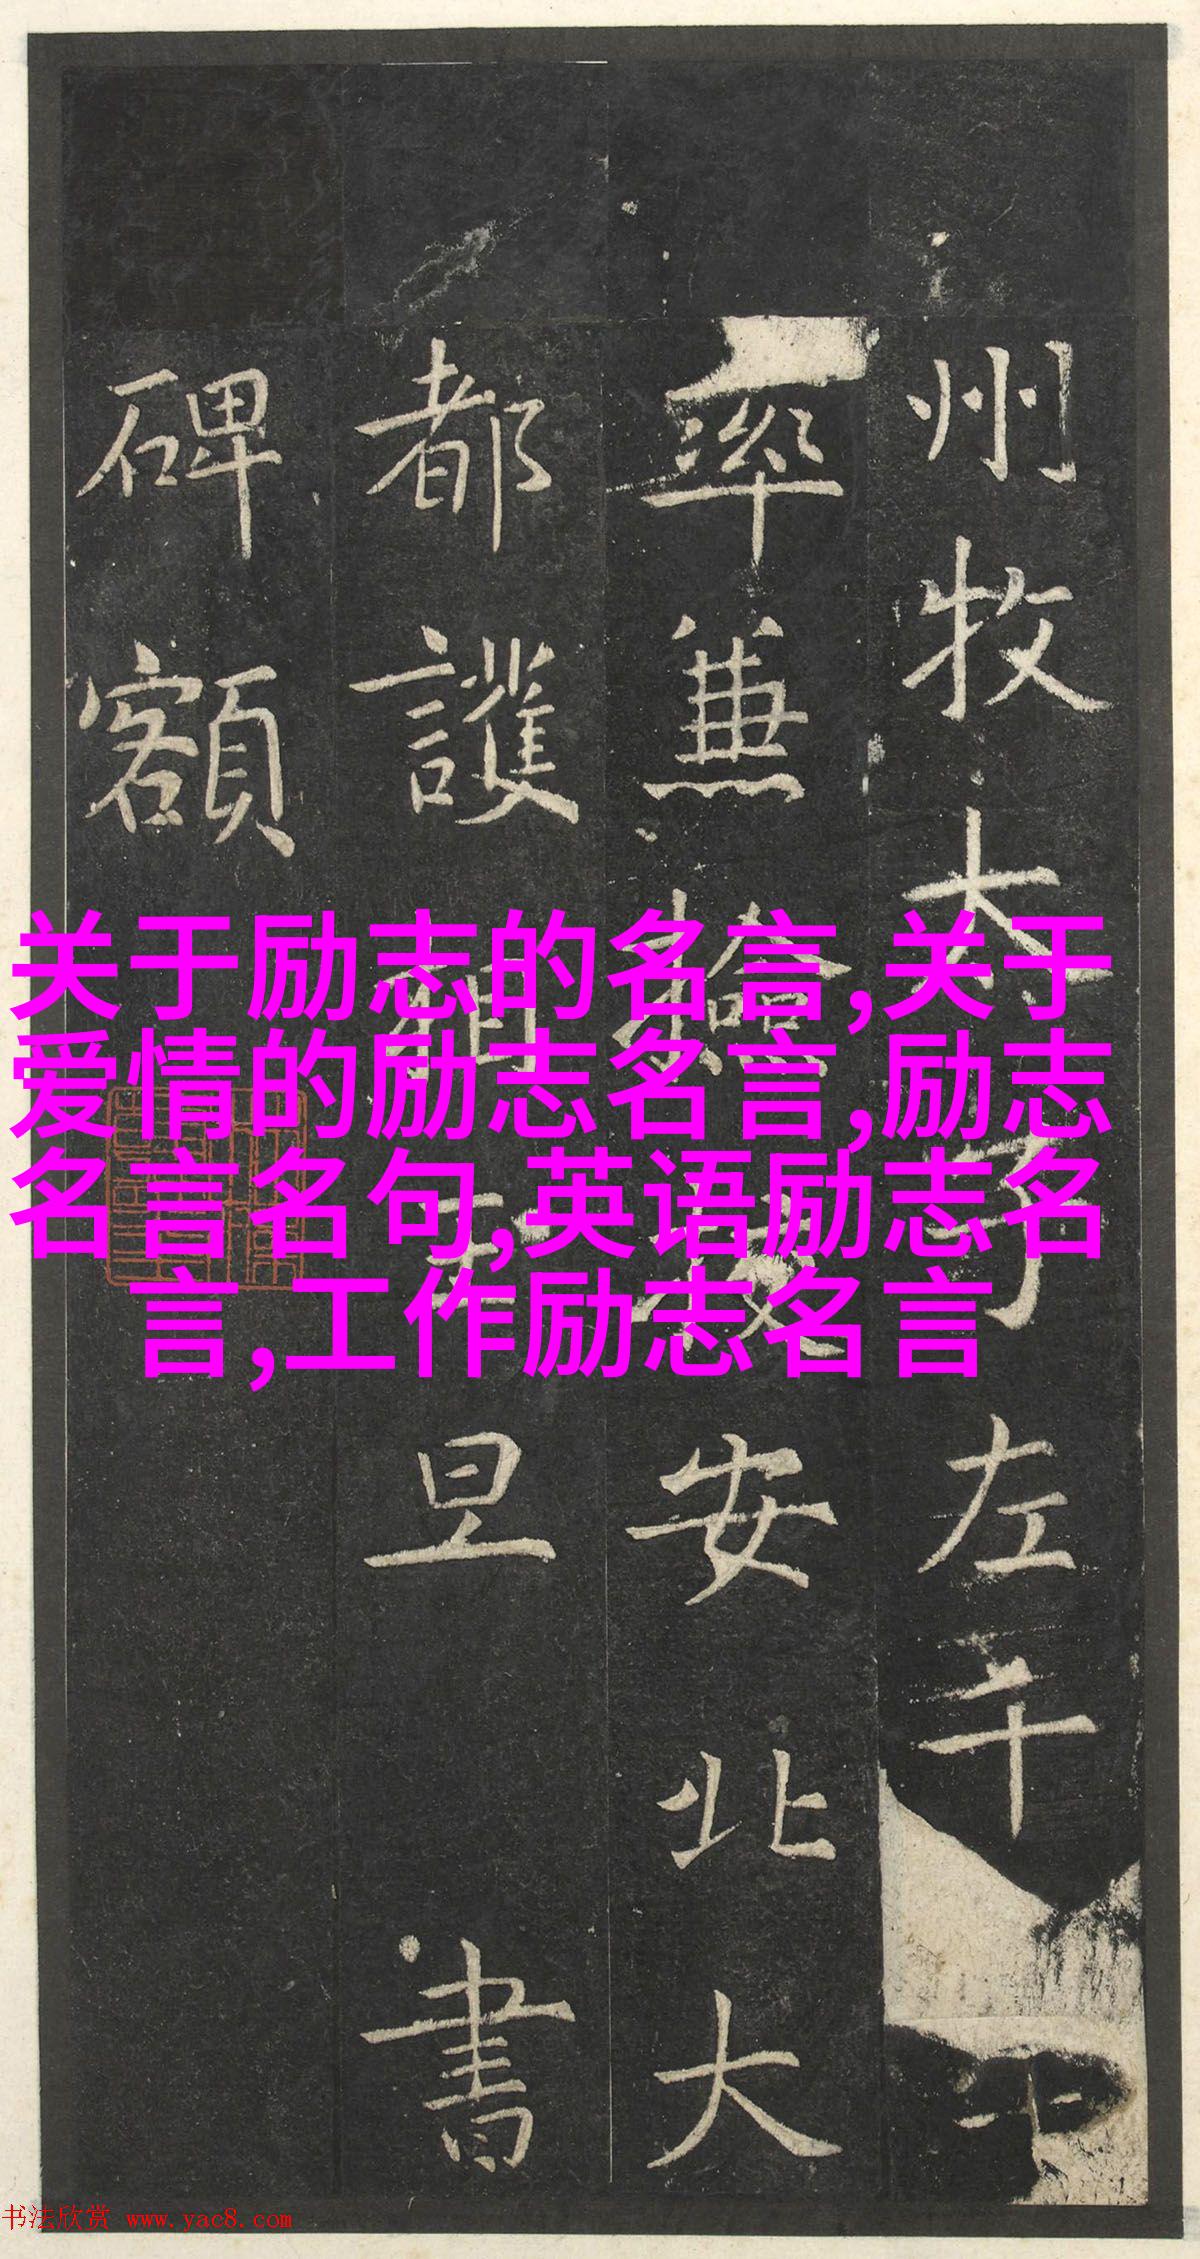 州牧太子左千
率兼檢校安北大
都護相王旦書
碑額
关于励志的名言,关于
爱情的励志名言,励志
名言名句,英语励志名
言,工作励志名言
书法欣赏 www.yac8.com